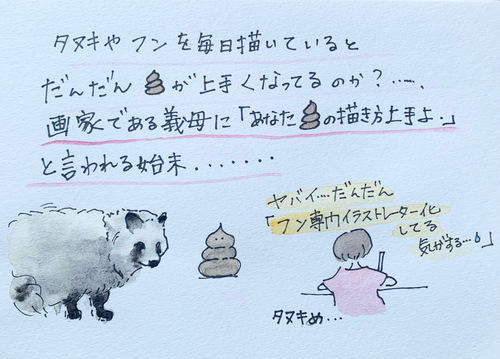 タヌキや フンを毎日描いていると
だんだん 💩が上手くなってるのか?.....
画家である義母に「あなた💩の描き方上手よ。」
と言われる始末.......
ヤバイ...だんだん
「フン専門イラストレーター化
してる
気がする...」
タヌキめ...